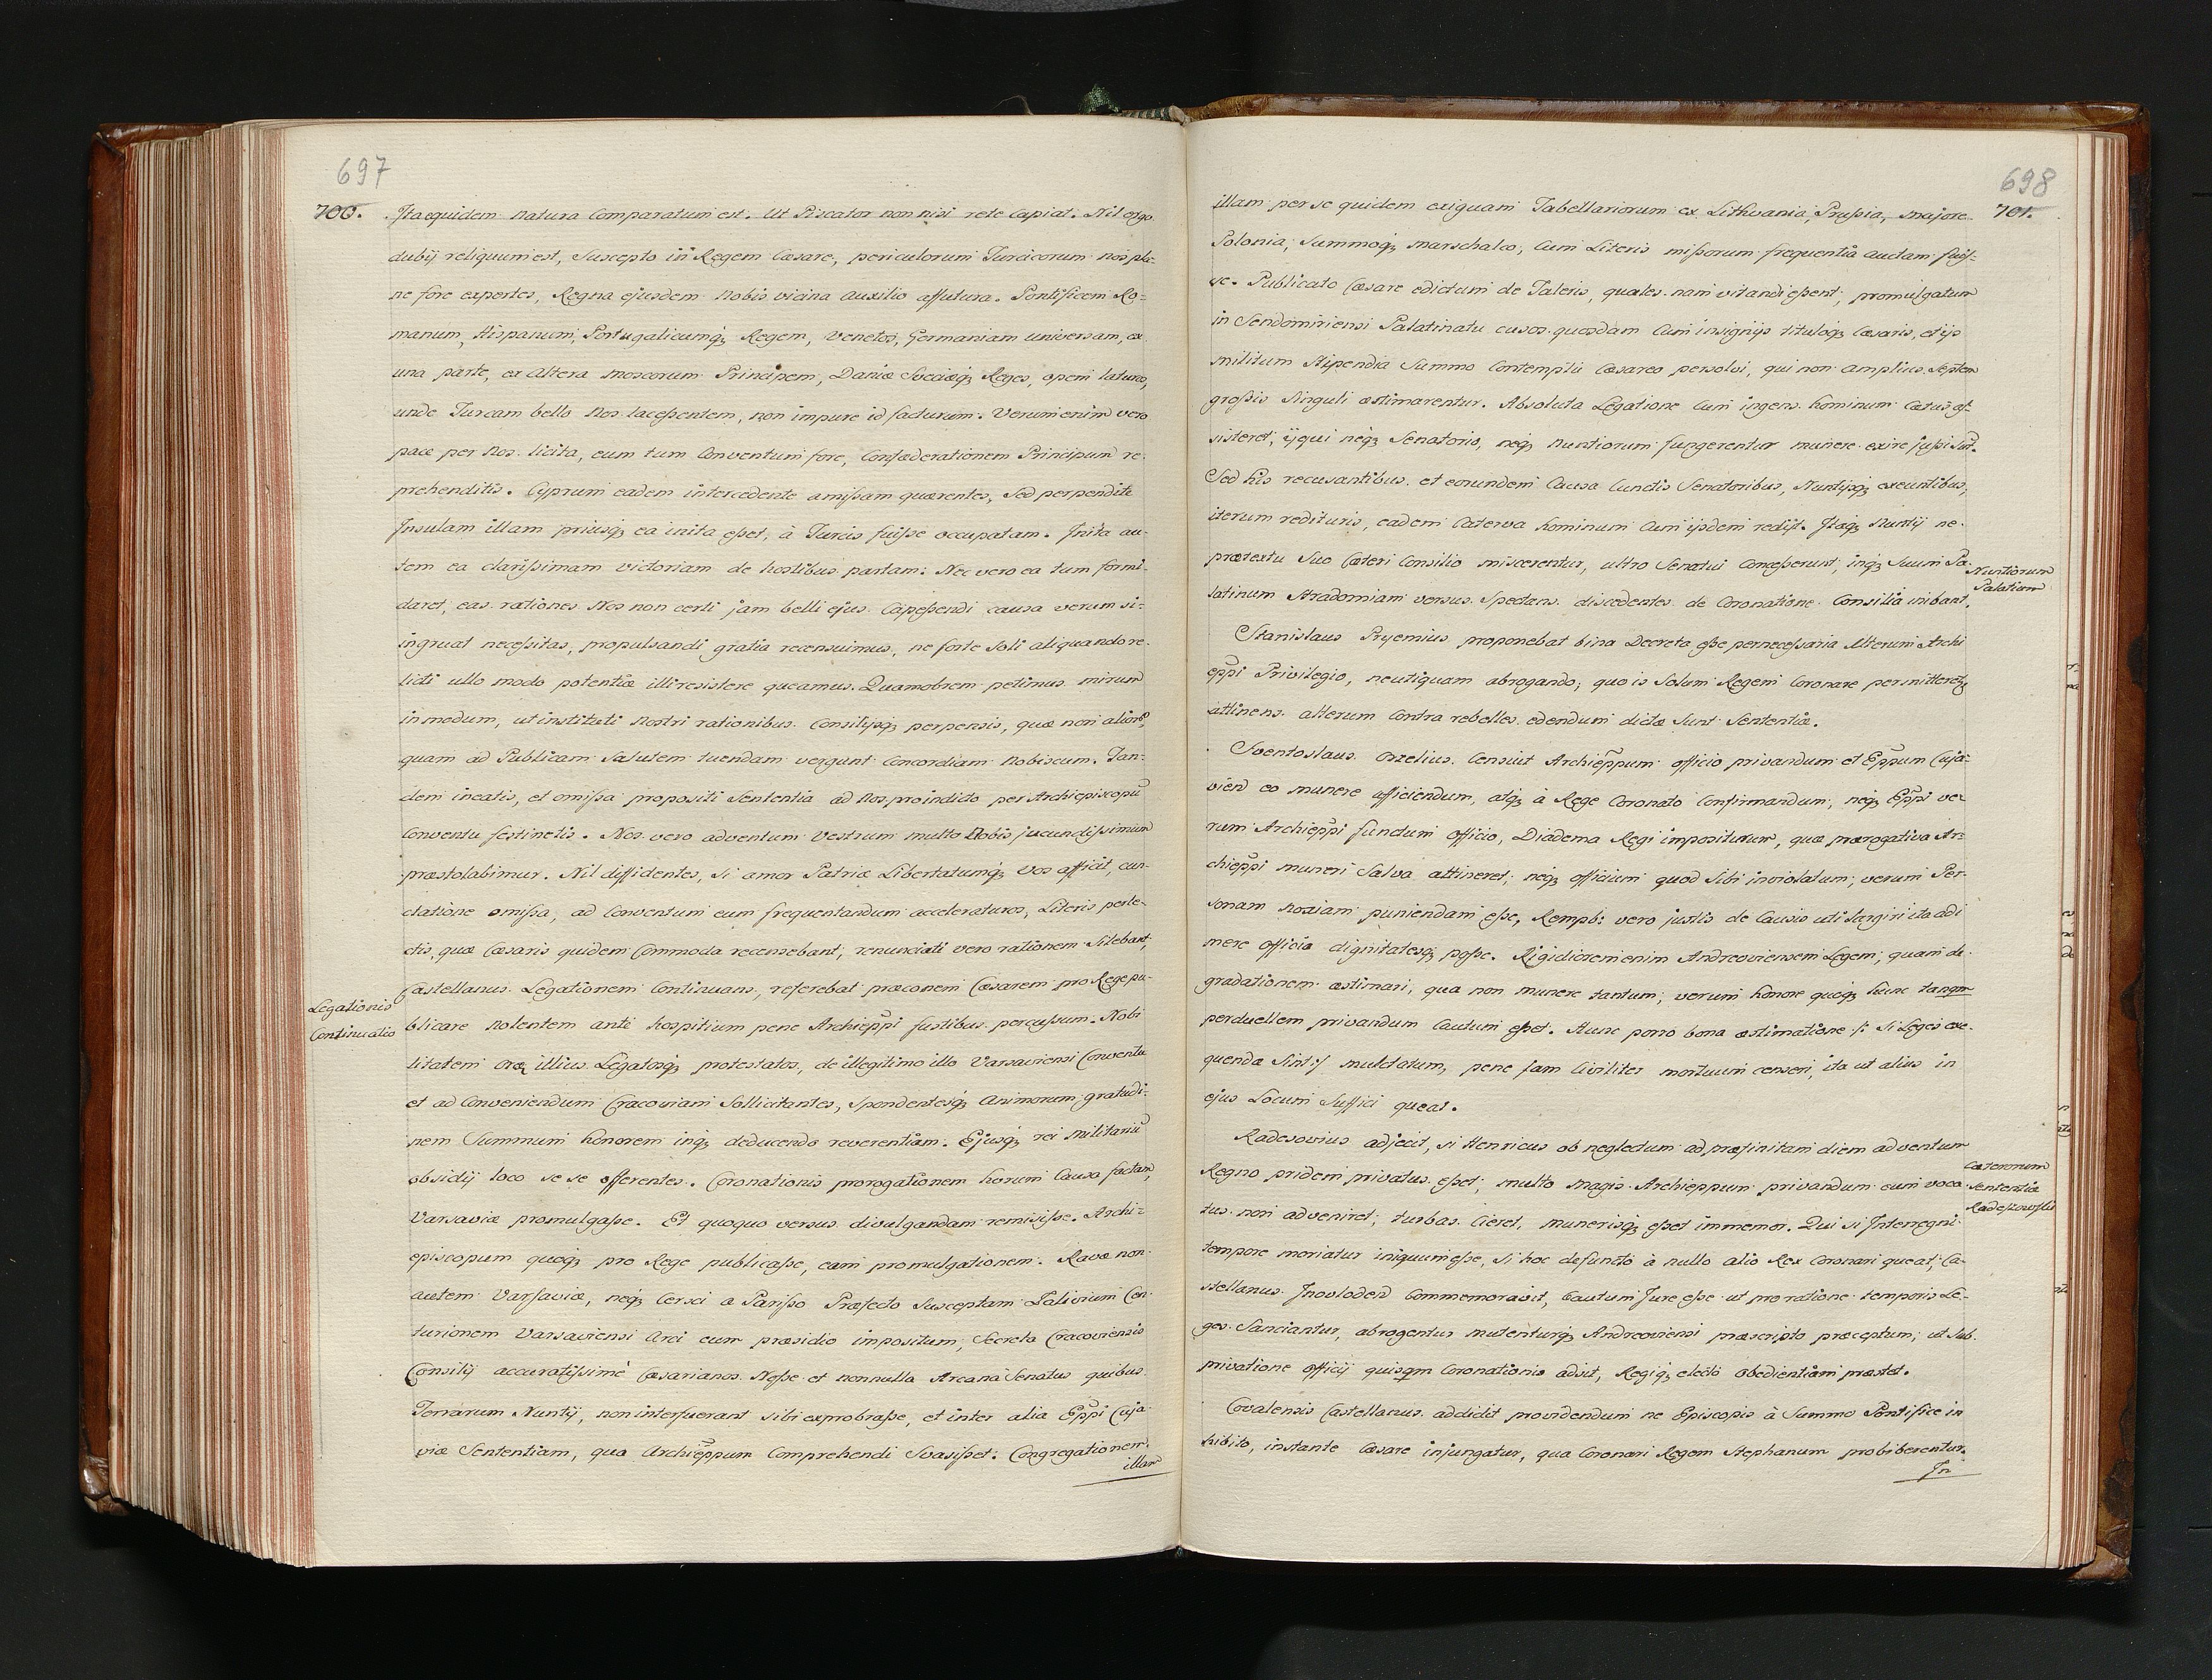 697
700.
Itaequidem natura Comparatum est. Ut Piscator non nisi rete Capiat. Nil ergo
dubij reliquum est, Suscepto in Regem Cæsare, periculorum Turcicorum nos pla-
ne fore expertes, Regna ejusdem Nobis vicina Auxilio affutura. Pontificem Ro-
manum, Hispanum, Portugalicumq; Regem, Venetos, Germaniam universam, ex
una parte, ex Altera Moscorum Principem, Daniæ Sveciæq; Reges, opem laturos,
unde Turcam bello Nos lacessentem, non impure id facturum. Verum enim vero
pace per Nos licita, cum tum Conventum fore, Confæderationem Principum re-
prehenditis. Cyprum eadem intercedente amissam quærentes, Sed perpendite
Insulam illam priusq; ea inita esset, à Turcis fuisse occupatam. Inita au-
tem ea clarissimam victoriam de hostibus partam: Nec vero ea tum formi-
daret, eas rationes Nos non certi jam belli ejus Capessendi causa verum si-
ingruat necessitas, propulsandi gratia recensuimus, ne forte Soli aliquando re-
licti ullo modo potentiæ illi resistere queamus. Quamobrem petimus mirum
in modum, ut instituti Nostri rationibus Consilijsq; perpensis, quæ non aliors,
quam ad Publicam Salutem tuendam vergunt Concordiam Nobiscum. Tan-
dem ineatis, et omissa propositi Sententia ad Nos pro indicto per Archiepiscopū
Conventu festinetis. Nos vero adventum Vestrum multo Nobis jucundissimum
præstolabimur. Nil diffidentes, Si amor Patriæ Libertatumq; Vos afficit, cun-
ctatione omissa, ad Conventum eum frequentandum acceleraturos, Literis perle-
ctis, quæ Cæsaris quidem Commoda recensebant, renunciati vero rationem Silebant,
Castellanus Legationem Continuans, referebat præconem Cæsarem pro Rege pu-
Legationis
Continuatio
blicare Nolentem ante hospitium pene Archieppi fustibus percussum. Nobi
litatem Oræ illius Legatosq; protestatos, de illegitimo illo Varsaviensi Conventu
et ad Conveniendum Cracoviam Sollicitantes, Spondentesq; Animorum gratudi-
nem Summum honorem inq; deducendo reverentiam. Ejusq; rei militariū
obsidij loco se se offerentes. Coronationis prorogationem horum Causa factam,
Varsaviæ promulgasse. Et quoquo versus divulgandam remisisse. Archi-
episcopum quoq; pro Rege publicasse, eam promulgationem. Ravæ non
autem Varsaviæ, neq; Cersci a Parisso Præfecto Susceptam Talivium Cen-
turionem Varsaviensi Arci cum præsidio impositum, Secreta Cracoviensis
Consilij accuratissimè Cæsarianos Nosse et nonnulla Arcana Senatus quibus
Terrarum Nuntij, non interfuerant sibi exprobrasse, et inter alia Eppi Cuja
viæ Sententiam, qua Archieppum Comprehendi Svasisset. Congregationem
illam
698
701.
illam per se quidem exiguam Tabellariorum ex Lithvania, Prussia, Majore
Polonia, Summoq; Marschalco, Cum Literis missorum frequentiâ auctam fuis-
se. Publicato Cæsare edictum de Taleris, quales nam vitandi essent, promulgatum
in Sendomiriensi Palatinatu cusos quosdam Cum insignijs tituloq; Cæsaris, et ijs
militum Stipendia Summo Contemptu Cæsareo persolvi, qui non amplius Septem
grossis Singuli æstimarentur. Absoluta Legatione Cum ingens hominum Cætus as-
sisteret, ij qui neq; Senatorio, neq; Nuntiorum fungerentur munere exire jussi Sūt.
Sed his recusantibus et eorundem Causa Cunctis Senatoribus, Nuntijsq; exeuntibus,
iterum redituris, eadem Caterva hominum Cum ijsdem redijt. Itaq; Nuntij ne
prætextu Suo Cæteri Consilio miscerentur, ultro Senatui Concesserunt, inq; Suum Pa-
Nuntiorum
Palatium
latinum Stradomiam versus Spectans discedentes de Coronatione Consilia inibant.
Stanislaus Pryemius proponebat bina Decreta esse pernecessaria Alterum Archi
eppi Privilegio, neutiquam abrogando, quo is Solum Regem Coronare permitteretq;
attinens alterum Contra rebelles edendum dictæ Sunt Sententiæ.
Sventoslaus Orzelius Censuit Archieppum officio privandum et Eppum Cuja-
vien̄ eo munere afficiendum, atq; à Rege Coronato Confirmandum, neq; Eppi ve-
rum Archieppi functum officio, Diadema Regi impositurum, quæ prærogativa Ar-
chieppi muneri Salva attineret, neq; officium quod Sibi inviolatum, verum Per-
sonam Noxiam puniendam esse, Rempb: vero justis de Causis uti largiri ita adi
mere officia dignitatesq; posse. Rigidiorem enim Andreoviensem Legem, quam de-
gradationem æstimari, qua non munere tantum, verum honore quoq; hunc tanqm
perduellem privandum Cautum esset. Hunc porro bona æstimatione /: Si Leges exe-
quendæ Sint :/ mulctatum, pene jam Civiliter mortuum censeri, ita ut alius in
ejus Locum Suffici queat.
Radesovius adjecit, si Henricus ob neglectum ad præfinitam diem adventum
Cæterorum
Sententiæ
Radeszowski
Regno pridem privatus esset, multo magis Archieppum privandum cum voca-
tus non adveniret, turbas Cieret, munerisq; esset immemor. Qui si Interregni
tempore moriatur iniquum esse, si hoc defuncto à nullo alio Rex Coronari queat, Ca-
stellanus Inovloden̄ Commemoravit, Cautum Jure esse ut pro ratione temporis Le-
ges Sanciantur, abrogentur mutenturq; Andreoviensi præscripto præceptum, ut Sub
privatione officij quisqm Coronationis adsit, Regiq; electo obedientiam præstet.
Covalensis Castellanus addidit providendum ne Episcopis à Summo Pontifice in
hibito, instante Cæsare injungatur, qua Coronari Regem Stephanum prohiberentur.
In